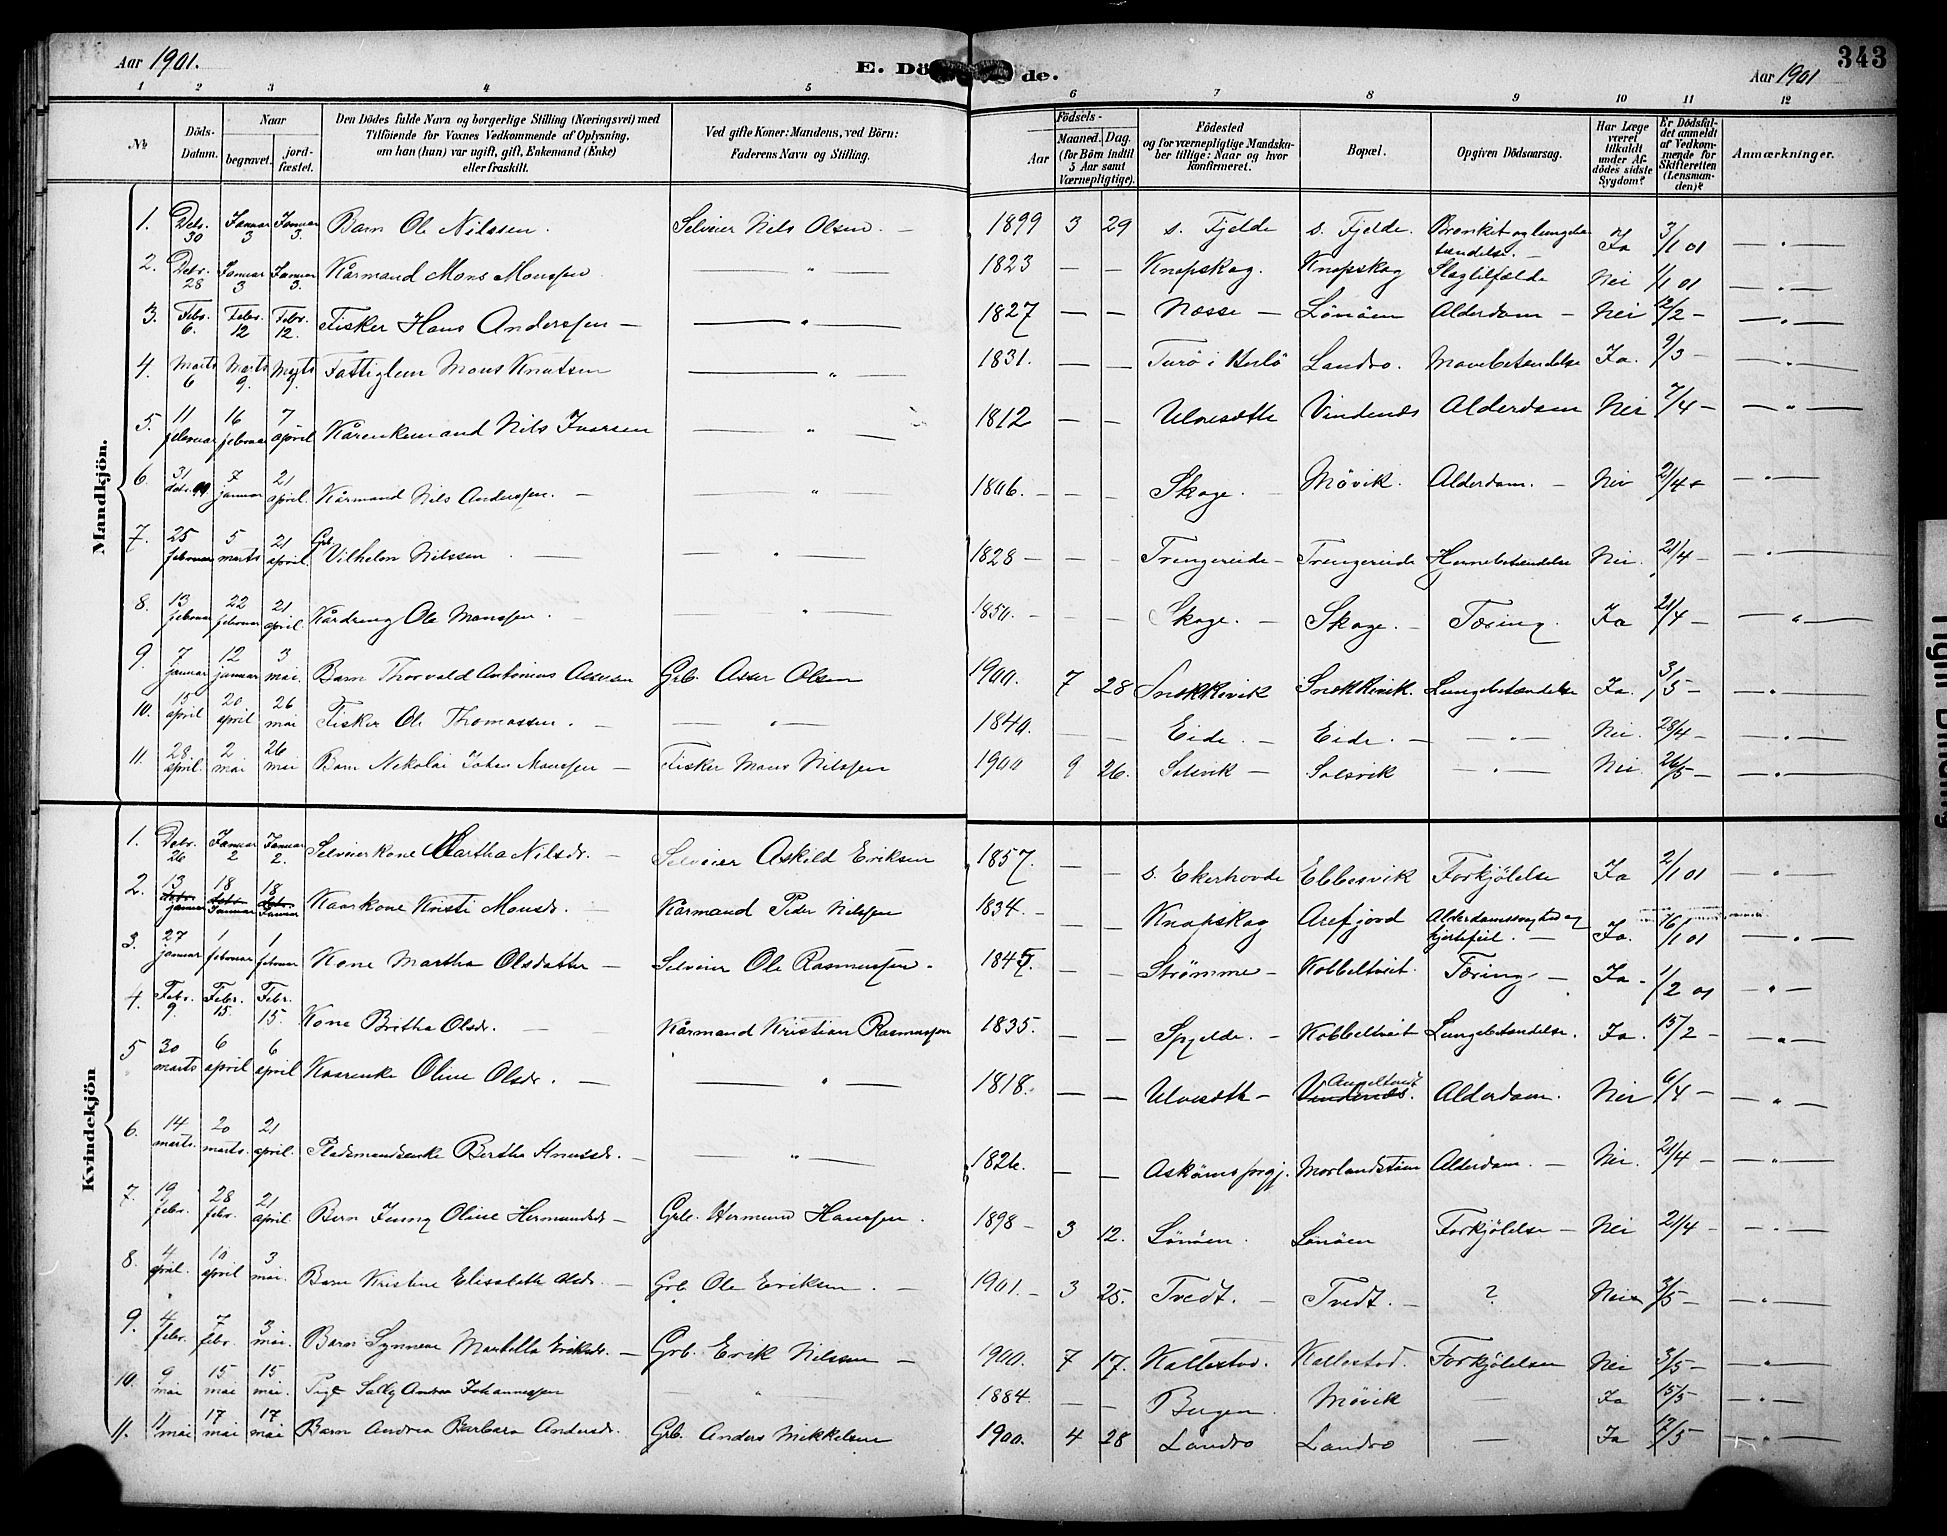 Aar 1901.
E. Dö de.
343
Aar 1901
1 2 3 4 5 6 7 8 9 10 11 12
№
Döds-Datum.
Naar
begravet.
jord-fæstet.
Den Dödes fulde Navn og borgerlige Stilling (Næringsvei) med
Tilföiende for Voxnes Vedkommende af Oplysning,
om han (hun) var ugift, gift, Enkemand (Enke)
eller fraskilt.
Ved gifte Koner: Mandens, ved Börn:
Faderens Navn og Stilling.
Födsels-
Aar
Maaned. Dag.
(for Börn indtil
5 Aar samt
Værnepligtige).
Födested
og for værnepligtige Mandska-
ber tillige: Naar og hvor
konfirmeret.
Bopæl.
Opgiven Dödsaarsag.
Har Læge
været
tilkaldt
under Af-
dödes sidste
Sygdom?
Er Dödsfal-
det anmeldt
af Vedkom-
mende for
Skifteretten
(Lensman-
den)?
Anmærkninger.
Mandkjön.
1. Debr. 30 Januar 3 Januar 3. Barn Ole Nilssen. Selveier Nils Olsen. — 1899 3 29 s. Fjelde s. Fjelde. Bronkit og lungebetændelse. — Ja 3/1 01 — " —
2. Debr. 28 Januar 3 Januar 3. Kårmand Mons Monssen — " — 1823 — — Knapskog. Knapskog Slagtilfælde Nei 1/1 01 — " —
3. Febr. 6 Febr. 12 Febr. 12. Fisker Hans Anderssen — — " — 1827 — — Næsse — Lönöen Alderdom — Nei 12/2 — — " —
4. Marts 6 Marts 9. Marts 9. Fattiglem Mons Knutsen — " — 1831. — — Turö i Herlö Landro. Mavebetændelse Ja. 9/3 — — " —
5. 11 februar 16 februar 7 april Kårenkemand Nils Ivarsen — " — 1812 — — Ulvesæth Vindenæs Alderdom Nei 7/4 — — " —
6. 31 debr. 7 januar 21 april Kårmand Nils Anderssen. — " 1806. — — — Skoge. Møvik. Alderdom. — Nei 21/4 — " —
7. 25 februar 5 marts 21 april Grb. Vilhelm Nilssen. — — " — 1828 — — — Trengereide — Trengereide Hjernebetændelse Nei. 21/4 — " —
8. 13 februar 22 februar 21 april. Kårdreng Ole Monssen. — — " — 1850. — — — Skoge. — Skoge. — Tæring. Ja 21/4 — " —
9. 7 januar 12 januar 3 mai. Barn Thorvald Antonius Assersen Grb. Asser Olsen 1900. 7 28 Snekkevik Snekkevik. Lungebetændelse Ja. 3/5 — — " —
10. 15 april 20 april 26 mai Fisker Ole Thomassen. — — " — 1840. — — Eide. — Eide. — — " — Nei. 28/4 — — " —
11. 28 april. 2 mai 26 mai Barn Nikolai Johan Monssen — Fisker Mons Nilssen 1900 9 26. Solsvik — Solsvik — " — Nei. 26/5 — — " —
Kvindekjön
1. Debr. 26 Januar 2 Januar 2. Selveierkone Martha Nilsdr. — Selveier Askild Eriksen 1857. — — s. Ekerhovde Ebbesvik Forkjölelse Ja 2/1 01 — " —
2. 13 januar 18 Januar 18 Januar Kaarkone Kristi Monsdr. — Kårmand Peder Nilssen 1834. — — — Knapskog Arefjord Alderdomssvaghed og hjertefeil. — Ja. 16/1 01 — " —
3. 27 januar 1 februar 1 februar Kone Martha Olsdatter — Selveier Ole Rasmussen. 1845. — — Strømme — Kobbeltveit. Tæring. — Ja. 1/2 01 — " —
4. Febr. 9 Febr. 15 Febr. 15. Kone Britha Olsdr. — Kårmand Kristian Rasmussen 1835. — — Spjelde. — Kobbeltveit Lungebetændelse. Ja. 15/2 — — " —
5 30 marts 6 april 6 april Kaarenke Oline Olsdr. — — " — 1818. — — Ulvesæth — Vindenæs. Angeltveit Alderdom. Nei 6/4 — — " —
6. 14 marts. 20 marts. 21 april. Pladsmandsenke Bertha Knutsdr. — — " — 1826. — — Asköens prgj. Morlandstöen Alderdom. — Nei. 21/4 — — " —
7. 19 febr. 28 febr. 21 april Barn Jenny Oline Hermundsdr — Grb. Hermund Hanssen. 1898 — 3 12. Lönöen. Lönöen Forkjölelse — Nei 21/4 — — " —
8. 4 april. 10 april 3 mai. Barn Kristine Elisabeth Olsdr. — Grb. Ole Eriksen. — 1901. — 3 25. Tvedt. — Tvedt. — ? Nei 3/5 — — " —
9. 4 febr. 7 febr. 3 mai. Barn Synneve Marbella Eriksdr. — Grb. Erik Nilssen — 1900. 7 17. Kallestad. Kallestad. Forkjölelsen Nei 3/5 — — " —
10. 9 mai 15 mai 15 mai. Pige Sally Andrea Johannessen — " — 1884. — — Bergen. Møvik — Ja 15/5 — " —
11. 11 mai 17 mai 17 mai Barn Andrea Barbara Andersdr. Grb. Anders Mikkelsen 1900. 4 28 Landro Landro — Ja 17/5 — — " —